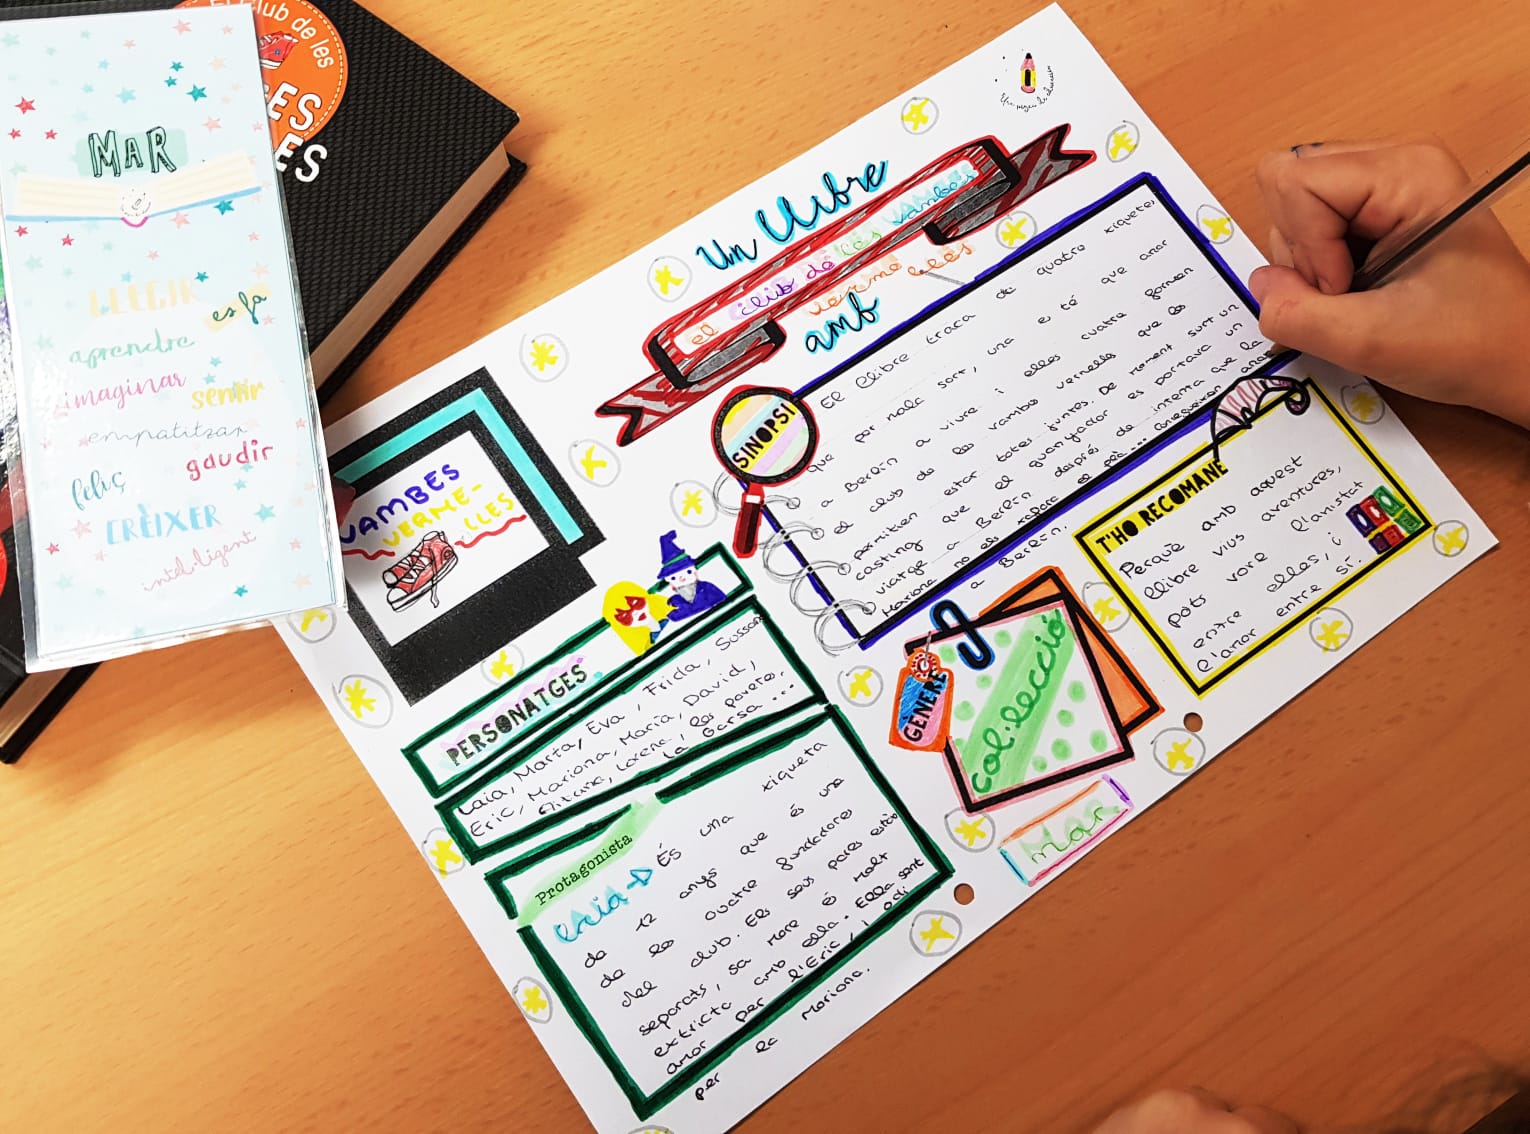 El Club de les
MAR
LLEGIR
es fa
aprendre
imaginar
sentir
empatitzar
feliç
gaudir
CRÈIXER
intel·ligent
Un Llibre
el club de les vambes
vermelles
amb
VAMBES
VERME-
LLES
SINOPSI
El llibre tracta de quatre xiquetes
que per mala sort, una e té que anar
a Berlín a viure i elles cuatre formen
el club de les vambes vermelles que los
permitien estar totes juntes. De moment surt un
casting que el guanyador es portava un
viatge a Berlín després de intenta que la
Mariona no els
a Berlín.
T'HO RECOMANE
Perquè amb aquest
llibre vius aventures,
pots vore l'amistat
entre elles, i
l'amor entre sí.
PERSONATGES
Laia, Marta, Eva, Frida, Sussan
Eric, Mariona, Maria, David,
Aitana, Lorena, los pavetes,
la Garsa...
Protagonista
Laia → És una xiqueta
de 12 anys que és una
de les cuatre fundadores
del club. Els seus pares estàn
separats, sa mare é molt
extricta amb ella. Ella sent
amor per l'Eric, i odi
per la Mariona.
GÈNERE
col·lecció
Mar